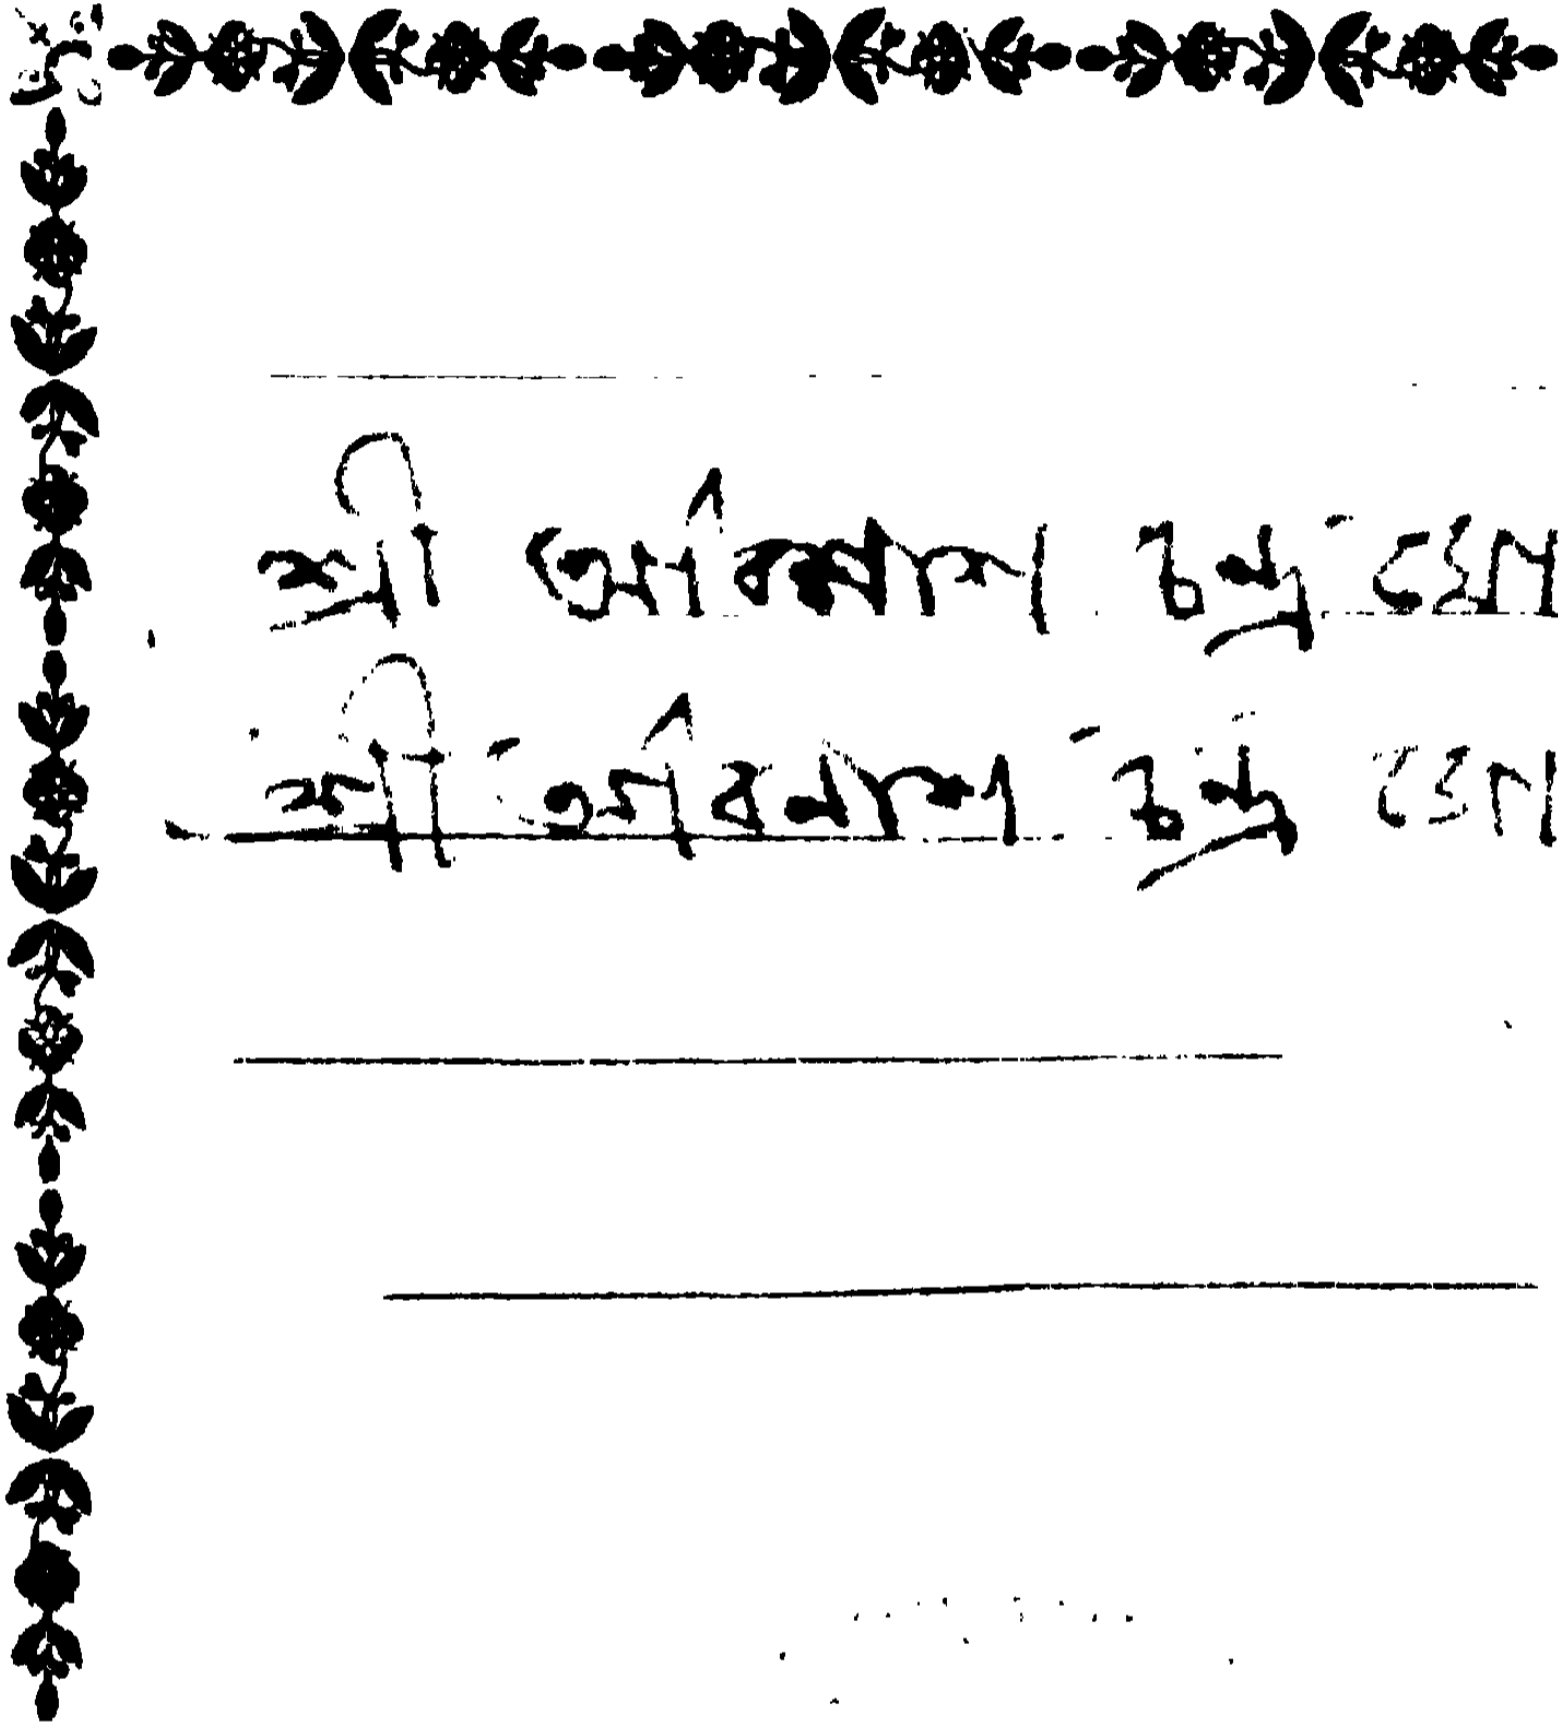 শ্রী অবিনাশ চন্দ্র ঘো
শ্রী অবিনাশ চন্দ্র ঘো